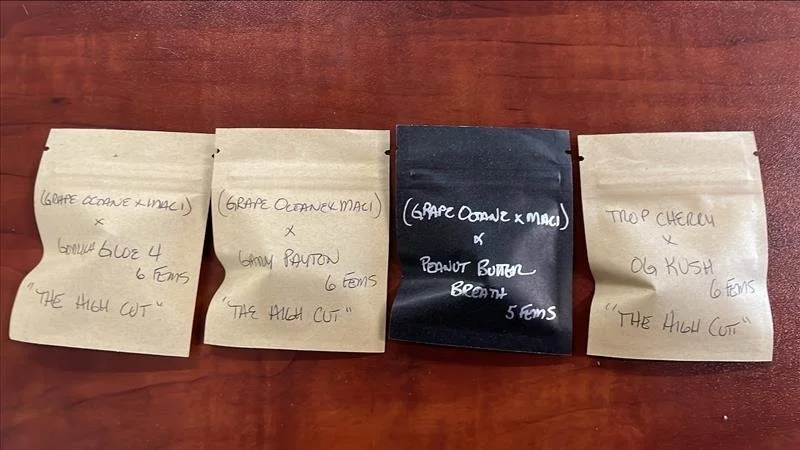 (GRAPE OCTANE X MACI)
X
GORILLA GLUE 4
6 FEMS
"THE HIGH CUT"
(GRAPE OCTANE X MACI)
X
GARY PAYTON
6 FEMS
"THE HIGH CUT"
(GRAPE OCTANE X MACI)
X
PEANUT BUTTER
BREATH
5 FEMS
TROP CHERRY
X
OG KUSH
6 FEMS
"THE HIGH CUT"